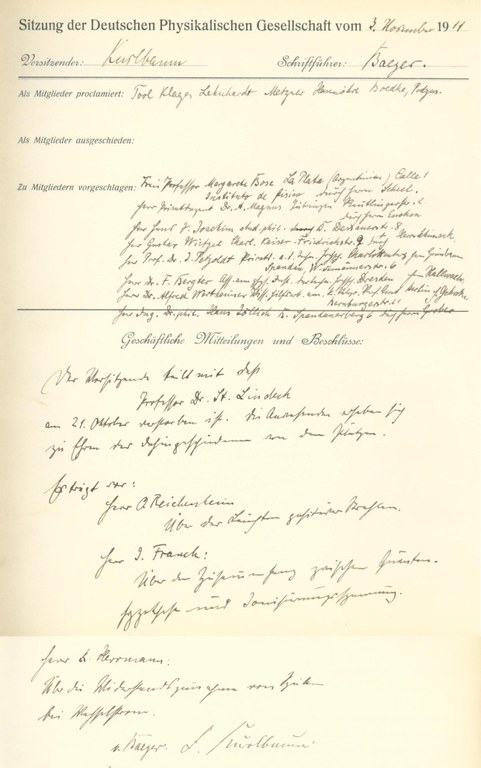 Sitzung der Deutschen Physikalischen Gesellschaft vom 3. November 1911
Vorsitzender: Kurlbaum Schriftführer: Baeyer.
Als Mitglieder proclamiert: Tool Klages Lehnhardt Metzner Boedke
Als Mitglieder ausgeschieden:
Zu Mitgliedern vorgeschlagen: Frau Professor Margarete Bose La Plata (Argentinien) Calle 1
Instituto de Fisica durch Herrn Scheel.
Herr Privatdozent Dr. A. Magnus Tübingen
durch Herrn Eucken
Herr Hans J. stud. phil. 8
Herr Gustav Charl. Kaiser-Friedrichstr. 9 durch
Herr Prof. Dr. J. Petzoldt Privatd. a. d. techn. Hochsch. Charlottenburg
Spandau, 6
Herr Dr. F. Bergter Ass. am phys. Inst. techn. Hochsch. Dresden Hallwachs
Herr Dr. Alfred Wertheimer am Berlin
Bernburgerstr.
Herr Ing. Dr. phil. Hans 6 durch Herrn
Geschäftliche Mitteilungen und Beschlüsse:
Der Vorsitzende teilt mit daß
Professor Dr. St. Lindeck
am 21. Oktober verstorben ist. Die Anwesenden erheben sich
zu Ehren des Dahingeschiedenen von den Plätzen.
Es trägt vor:
Herr O. Reichenheim
Über das Leuchten positiver Strahlen.
Herr J. Franck:
Über den Zusammenhang zwischen Quanten-
hypothese und Ionisierungsspannung.
Herr K. Herrmann:
Über die Widerstandszunahme von Spulen
bei Wechselstrom.
v. Baeyer. F. Kurlbaum